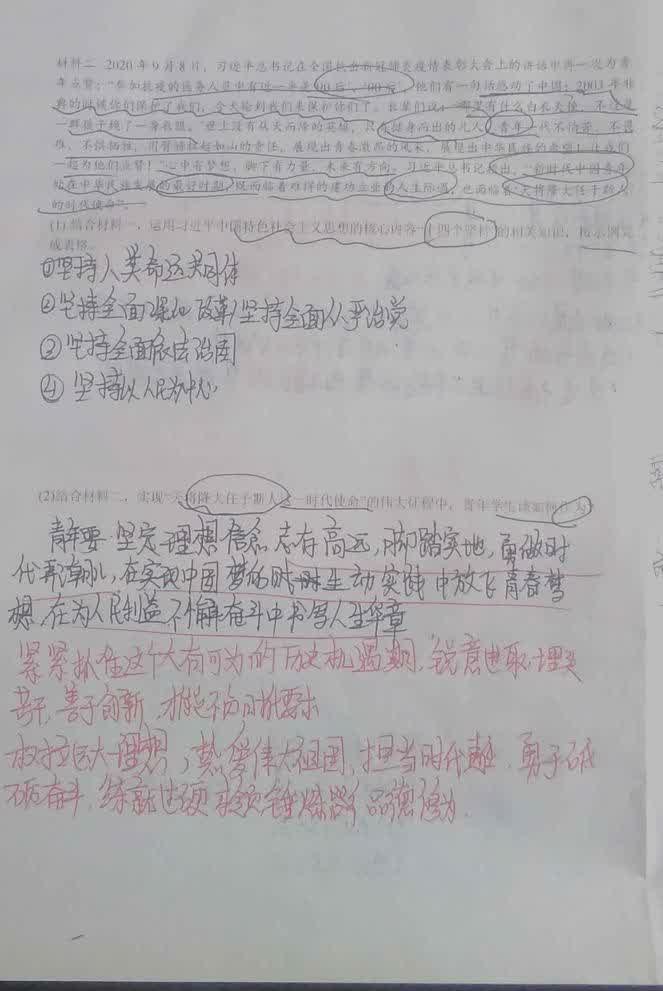 材料二 2020年9月8日，习近平总书记在全国抗击新冠肺炎疫情表彰大会上的讲话中再一次为青
年点赞："参加抗疫的医务人员中有近一半是'90后''00后'，他们有一句话感动了中国：2003年非
典的时候你们保护了我们，今天轮到我们来保护你们了。长辈们说：'哪里有什么白衣天使，不过是
一群孩子换了一身衣服。'世上没有从天而降的英雄，只有挺身而出的凡人。青年一代不怕苦、不畏
难、不惧牺牲，用臂膀扛起如山的责任，展现出青春激昂的风采，展现出中华民族的希望！让我们
一起为他们点赞！"心中有梦想，脚下有力量，未来有方向。习近平总书记指出，"新时代中国青年
处在中华民族发展的最好时期，既面临着难得的建功立业的人生际遇，也面临着'天将降大任于斯人'
的时代使命"。
(1)结合材料一，运用习近平中国特色社会主义思想的核心内容—"四个学科"的相关知识，按示例完
成表格。
①坚持人类命运共同体
②坚持全面深化改革/坚持全面从严治党
③坚持全面依法治国
④坚持以人民为中心
(2)结合材料二，实现"天将降大任于斯人这一时代使命"的伟大征程中，青年学生该如何作为？
青年要坚定理想信念，志存高远，脚踏实地，勇做时
代弄潮儿，在实现中国梦的生动实践中放飞青春梦
想，在为人民利益不懈奋斗中书写人生华章
紧紧抓住这个大有可为的历史机遇期，锐意进取，埋头
苦干，善于创新，
树立远大理想，热爱伟大祖国，担当时代重任，勇于砥
砺奋斗，练就过硬本领，锤炼品德修为.